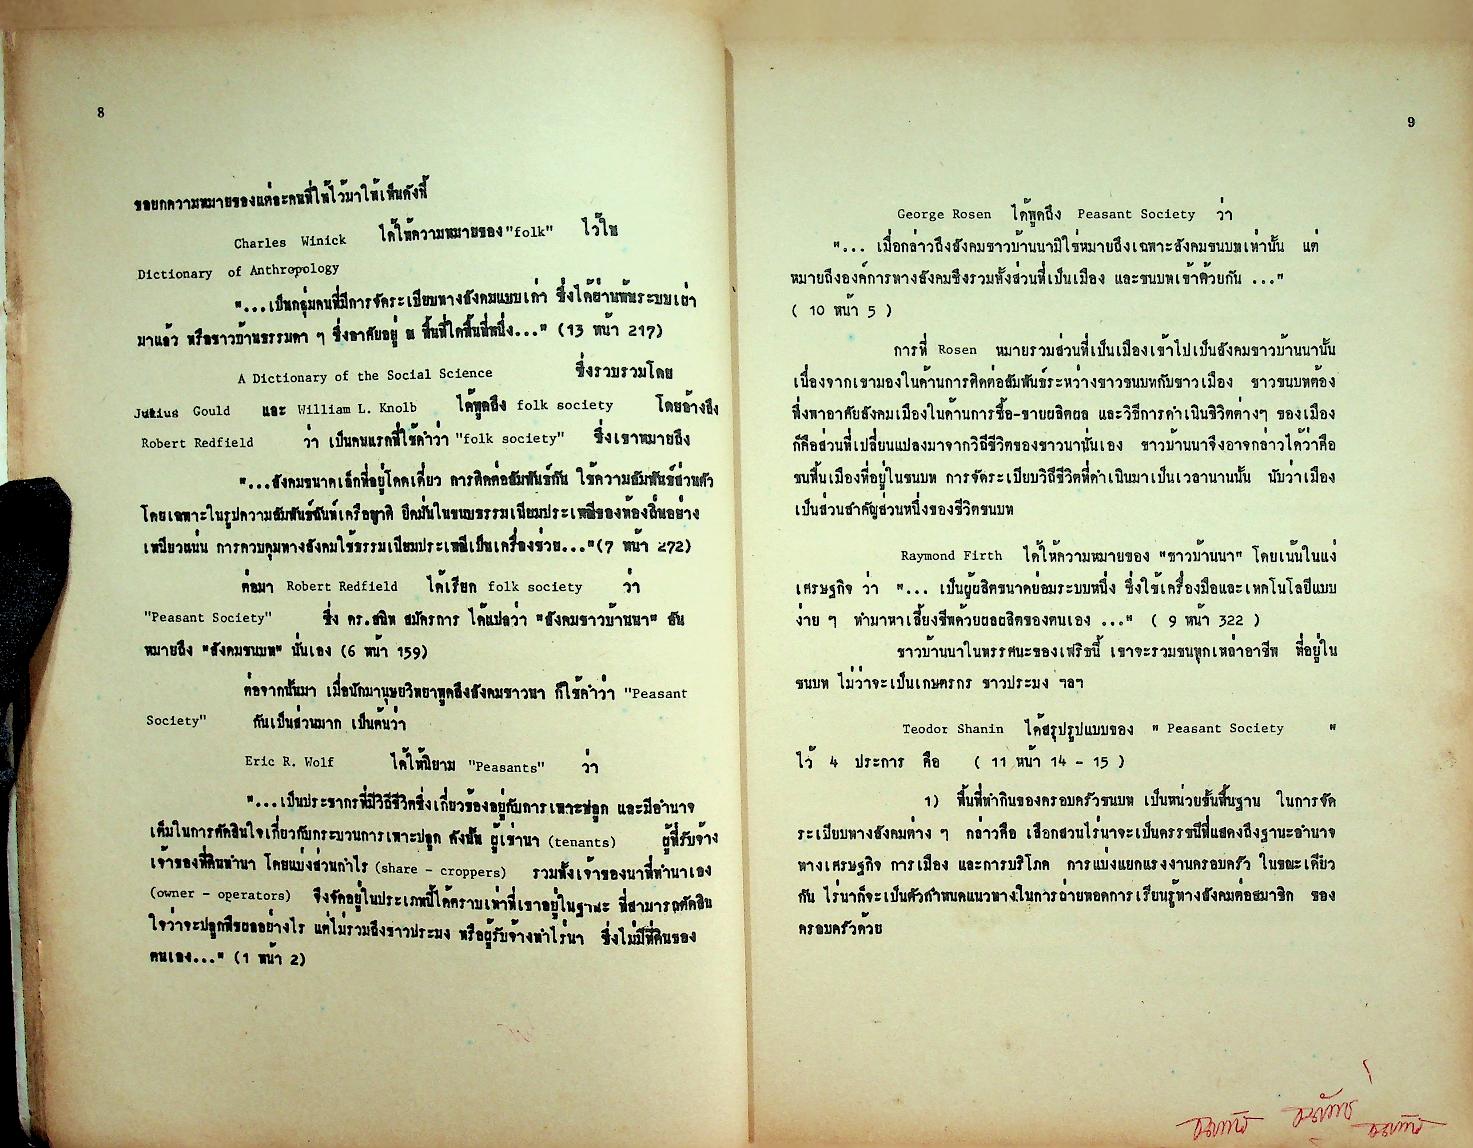 8
ขอยกความหมายของแต่ละคนที่ให้ไว้มาให้เห็นดังนี้
Charles Winick ได้ให้ความหมายของ "folk" ไว้ใน
Dictionary of Anthropology
"...เป็นกลุ่มคนที่มีการจัดระเบียบทางสังคมแบบเก่า ซึ่งได้ผ่านพ้นระบบเผ่า
มาแล้ว หรือชาวบ้านธรรมดา ๆ ซึ่งอาศัยอยู่ ณ พื้นที่ใดพื้นที่หนึ่ง..." (13 หน้า 217)
A Dictionary of the Social Science ซึ่งรวบรวมโดย
Julius Gould และ William L. Knolb ได้พูดถึง folk society โดยอ้างถึง
Robert Redfield ว่า เป็นคนแรกที่ใช้คำว่า "folk society" ซึ่งเขาหมายถึง
"...สังคมขนาดเล็กที่อยู่โดดเดี่ยว การติดต่อสัมพันธ์กัน ใช้ความสัมพันธ์ส่วนตัว
โดยเฉพาะในรูปความสัมพันธ์ฉันท์เครือญาติ ยึดมั่นในขนบธรรมเนียมประเพณีของท้องถิ่นอย่าง
เหนียวแน่น การควบคุมทางสังคมใช้ธรรมเนียมประเพณีเป็นเครื่องช่วย..."(7 หน้า 272)
ต่อมา Robert Redfield ได้เรียก folk society ว่า
"Peasant Society" ซึ่ง ดร.สนิท สมัครการ ได้แปลว่า "สังคมชาวบ้านนา" อัน
หมายถึง "สังคมชนบท" นั่นเอง (6 หน้า 159)
ต่อจากนั้นมา เมื่อนักมานุษยวิทยาพูดถึงสังคมชาวนา ก็ใช้คำว่า "Peasant
Society" กันเป็นส่วนมาก เป็นต้นว่า
Eric R. Wolf ได้ให้นิยาม "Peasants" ว่า
"...เป็นประชากรที่มีวิถีชีวิตซึ่งเกี่ยวข้องอยู่กับการเพาะปลูก และมีอำนาจ
เต็มในการตัดสินใจเกี่ยวกับกระบวนการเพาะปลูก ดังนั้น ผู้เช่านา (tenants) ผู้ที่รับจ้าง
เจ้าของที่ดินทำนา โดยแบ่งส่วนกำไร (share - croppers) รวมทั้งเจ้าของนาที่ทำนาเอง
(owner - operators) จึงจัดอยู่ในประเภทนี้ได้ตราบเท่าที่เขาอยู่ในฐานะ ที่สามารถตัดสิน
ใจว่าจะปลูกพืชผลอย่างไร แต่ไม่รวมถึงชาวประมง หรือผู้รับจ้างทำไร่นา ซึ่งไม่มีที่ดินของ
ตนเอง..." (1 หน้า 2)
9
George Rosen ได้พูดถึง Peasant Society ว่า
"... เมื่อกล่าวถึงสังคมชาวบ้านนามิใช่หมายถึงเฉพาะสังคมชนบทเท่านั้น แต่
หมายถึงองค์การทางสังคมซึ่งรวมทั้งส่วนที่เป็นเมือง และชนบทเข้าด้วยกัน ..."
( 10 หน้า 5 )
การที่ Rosen หมายรวมส่วนที่เป็นเมืองเข้าไปเป็นสังคมชาวบ้านนานั้น
เนื่องจากเขามองในด้านการติดต่อสัมพันธ์ระหว่างชาวชนบทกับชาวเมือง ชาวชนบทต้อง
พึ่งพาอาศัยสังคมเมืองในด้านการซื้อ-ขายผลิตผล และวิธีการดำเนินชีวิตต่างๆ ของเมือง
ก็คือส่วนที่เปลี่ยนแปลงมาจากวิถีชีวิตของชาวนานั่นเอง ชาวบ้านนาจึงอาจกล่าวได้ว่าคือ
ชนพื้นเมืองที่อยู่ในชนบท การจัดระเบียบวิถีชีวิตที่ดำเนินมาเป็นเวลานานนั้น นับว่าเมือง
เป็นส่วนสำคัญส่วนหนึ่งของชีวิตชนบท
Raymond Firth ได้ให้ความหมายของ "ชาวบ้านนา" โดยเน้นในแง่
เศรษฐกิจ ว่า "... เป็นผู้ผลิตขนาดย่อมระบบหนึ่ง ซึ่งใช้เครื่องมือและเทคโนโลยีแบบ
ง่าย ๆ ทำมาหาเลี้ยงชีพด้วยผลผลิตของตนเอง ..." ( 9 หน้า 322 )
ชาวบ้านนาในทรรศนะของเฟริธนี้ เขาจะรวมชนทุกเหล่าอาชีพ ที่อยู่ใน
ชนบท ไม่ว่าจะเป็นเกษตรกร ชาวประมง ฯลฯ
Teodor Shanin ได้สรุปรูปแบบของ " Peasant Society "
ไว้ 4 ประการ คือ ( 11 หน้า 14 - 15 )
1) พื้นที่ทำกินของครอบครัวชนบท เป็นหน่วยขั้นพื้นฐาน ในการจัด
ระเบียบทางสังคมต่าง ๆ กล่าวคือ เลือกสวนไร่นาจะเป็นดรรชนีที่แสดงถึงฐานะอำนาจ
ทางเศรษฐกิจ การเมือง และการบริโภค การแบ่งแยกแรงงานครอบครัว ในขณะเดียว
กัน ไร่นาก็จะเป็นตัวกำหนดแนวทางในการถ่ายทอดการเรียนรู้ทางสังคมต่อสมาชิก ของ
ครอบครัวด้วย